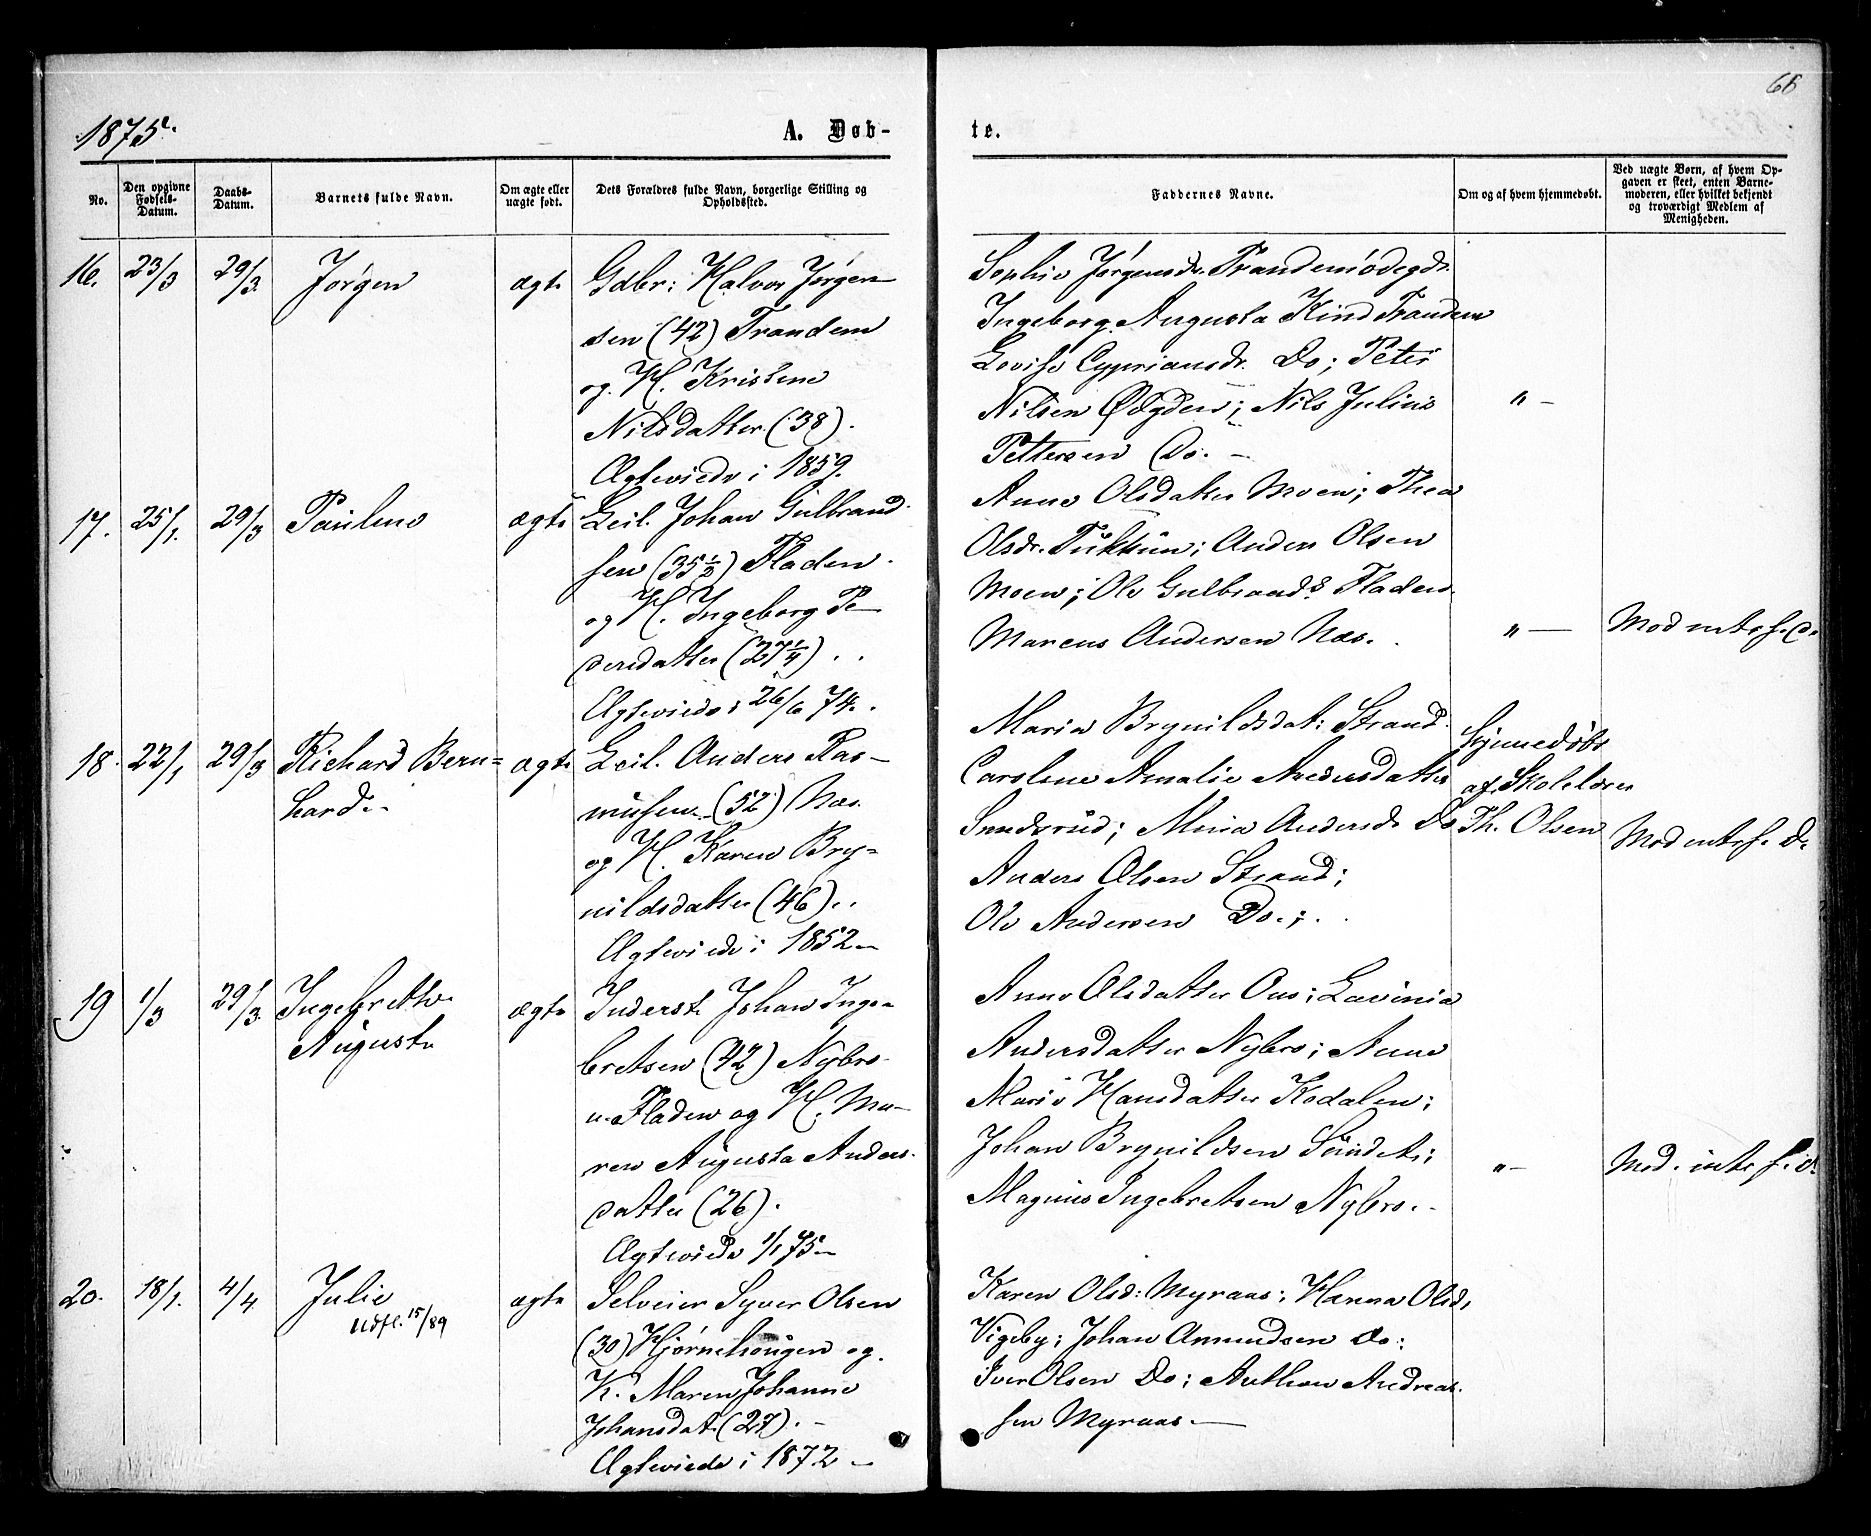 66
1875.
A. Døb-
te.
No.
Den opgivne Fødsels-Datum.
Daabs-Datum.
Barnets fulde Navn.
Om ægte eller uægte født.
Dets Forældres fulde Navn, borgerlige Stilling og Opholdssted.
Faddernes Navne.
Om og af hvem hjemmedøbt.
Ved uægte Børn, af hvem Op-
gaven er skeet, enten Barne-
moderen, eller hvilket bekjendt
og troværdigt Medlem af
Menigheden.
16. 23/3 29/3. Jørgen ægte
Gdbr: Halvor Jørgen-
sen (42) Trandem
og H. Kristine
Nilsdatter (38).
Ægteviede i 1859.
Sophie Jørgensdr. Trandem
Ingeborg Augusta Kind Trandem
Lovise Cypriansdr. Do; Peter
Nilsen Ødgden; Nils Julius
Pettersen Do. -
" -
17. 25/1. 29/3 Pauline ægte
Leil. Johan Gulbrand-
sen (35 1/2) Fladen.
og H. Ingeborg Pe-
dersdatter (27 1/4) . .
Ægteviede 26/6 74. .
Anne Olsdatter Moen; Thea
Olsdr. ; Anders Olsen
Moen; Ole Gulbrands. Fladen.
Marcus Andersen Næs.
" -
18. 22/1 29/3 Richard Bern=
hard.- ægte
Leil. Anders Ras-
musen (52) Næs.
og H. Karen Bry=
nildsdatter (46) . .
Ægteviede i 1852 -
Maria Brynildsdat: Strand.
Caroline Amalie Andersdatter
Sundsrud; Mina Andersd. Do
Anders Olsen Strand;
Ole Andersen Do.;.
Hjemmedøbt
af Skolelærer
Th. Olsen
19 1/3 29/3. Ingebrette
Auguste ægte
Inderst. Johan Inge-
bretsen (42) Nybro
u. Fladen og H. Ma-
ren Augusta Anders-
datter (26).
Ægteviede 1/1 75 -
Anne Olsdatter Ous; Lavinia
Andersdatter Nybro; Anne
Marie Hansdatter Kodalen;
Johan Brynildsen Sundet;
Magnus Ingebretsen Nybro. -
" -
20. 18/1. 4/4. Julie
Udfl. 15/89 ægte
Selveier Syver Olsen
(30) Hjørnehaugen og
K. Maren Johanne
Johansdat. (27). -
Ægteviede i 1872 -
Karen Olsd: Myraas; Hanna Olsd.
Vigeby; Johan Amundsen Do:
Iver Olsen Do; Anthon Andreas-
sen Myraas. -